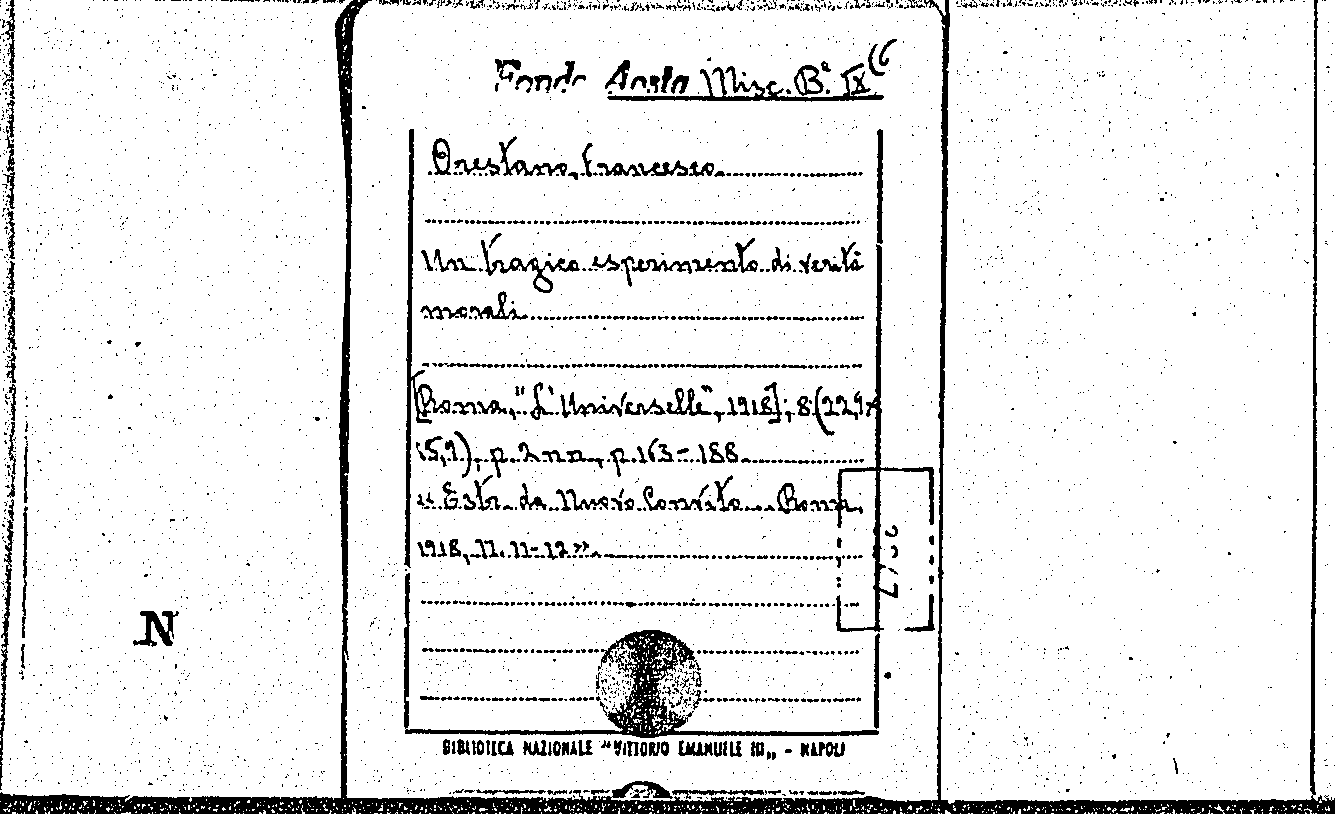 Fondo Aosta Misc. Bª. IX (6
Orestano, Francesco
Un tragico esperimento di verità
morali
[Roma, "L'Universelle", 1918]; 8. (22,9x
15,9), p. 2 n n, p. 163-188
"Estr. da Nuovo Convito... Roma,
1918, n. 11-12".
N
BIBLIOTECA NAZIONALE "VITTORIO EMANUELE III" - NAPOLI